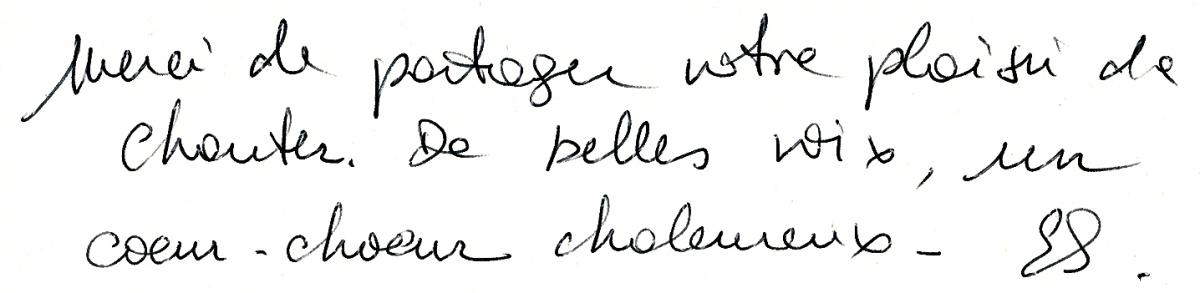 Merci de partager votre plaisir de
chanter. De belles voix, un
coeur-choeur chaleureux -